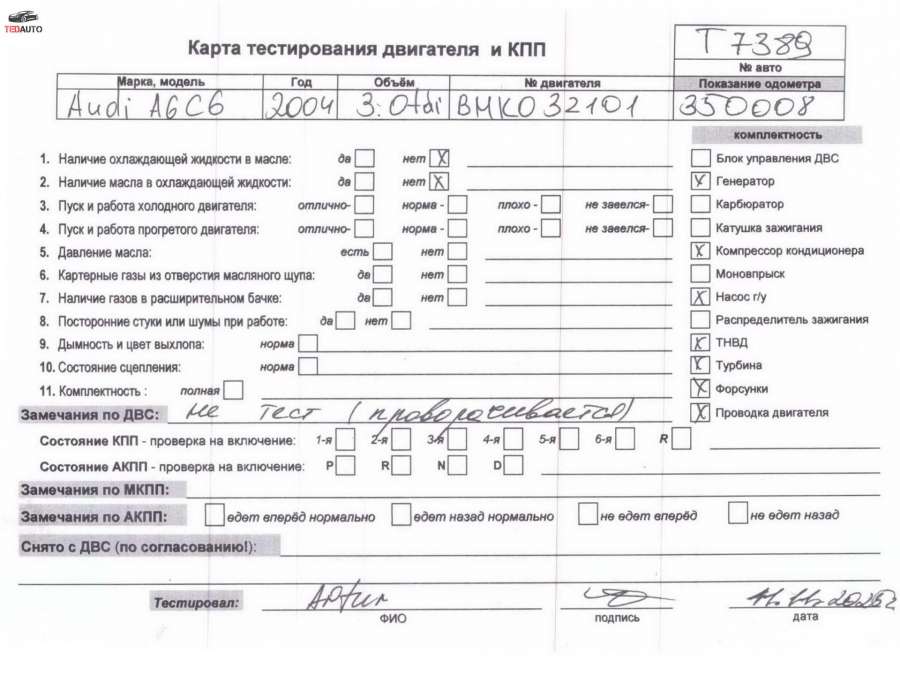 TEDAUTO
Карта тестирования двигателя и КПП
T 7389
№ авто
Марка, модель Год Объём № двигателя Показание одометра
Audi A6C6 2004 3.0tdi BMK032101 350008
комплектность
1. Наличие охлаждающей жидкости в масле: да нет X
Блок управления ДВС
2. Наличие масла в охлаждающей жидкости: да нет X
X Генератор
3. Пуск и работа холодного двигателя: отлично- норма - плохо - не завелся-
Карбюратор
4. Пуск и работа прогретого двигателя: отлично- норма - плохо - не завелся-
Катушка зажигания
5. Давление масла: есть нет
X Компрессор кондиционера
6. Картерные газы из отверстия масляного щупа: да нет
Моновпрыск
7. Наличие газов в расширительном бачке: да нет
X Насос г/у
8. Посторонние стуки или шумы при работе: да нет
Распределитель зажигания
9. Дымность и цвет выхлопа: норма
X ТНВД
10. Состояние сцепления: норма
X Турбина
11. Комплектность : полная
X Форсунки
Замечания по ДВС: не тест (проворачивается)
X Проводка двигателя
Состояние КПП - проверка на включение: 1-я 2-я 3-я 4-я 5-я 6-я R
Состояние АКПП - проверка на включение: P R N D
Замечания по МКПП:
Замечания по АКПП: едет вперёд нормально едет назад нормально не едет вперёд не едет назад
Снято с ДВС (по согласованию!):
Тестировал:
ФИО подпись дата